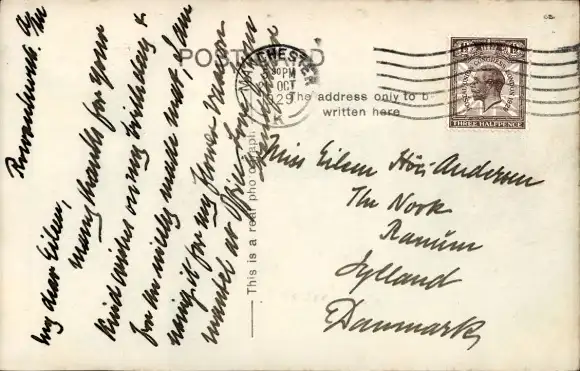 POST CARD
The address only to be
written here
MANCHESTER
30 PM
OCT
1929
K
POSTAL UNION CONGRESS LONDON 1929
THREE HALFPENCE
This is a real photograph.
Miss Eileen Höi-Andersen
The Nook
Ranum
Jylland
Danmark
My dear Eileen,
many thanks for your
kind wishes on my birthday &
for the nicely made mat, I am
using it for my flower vase on
mantel at Office